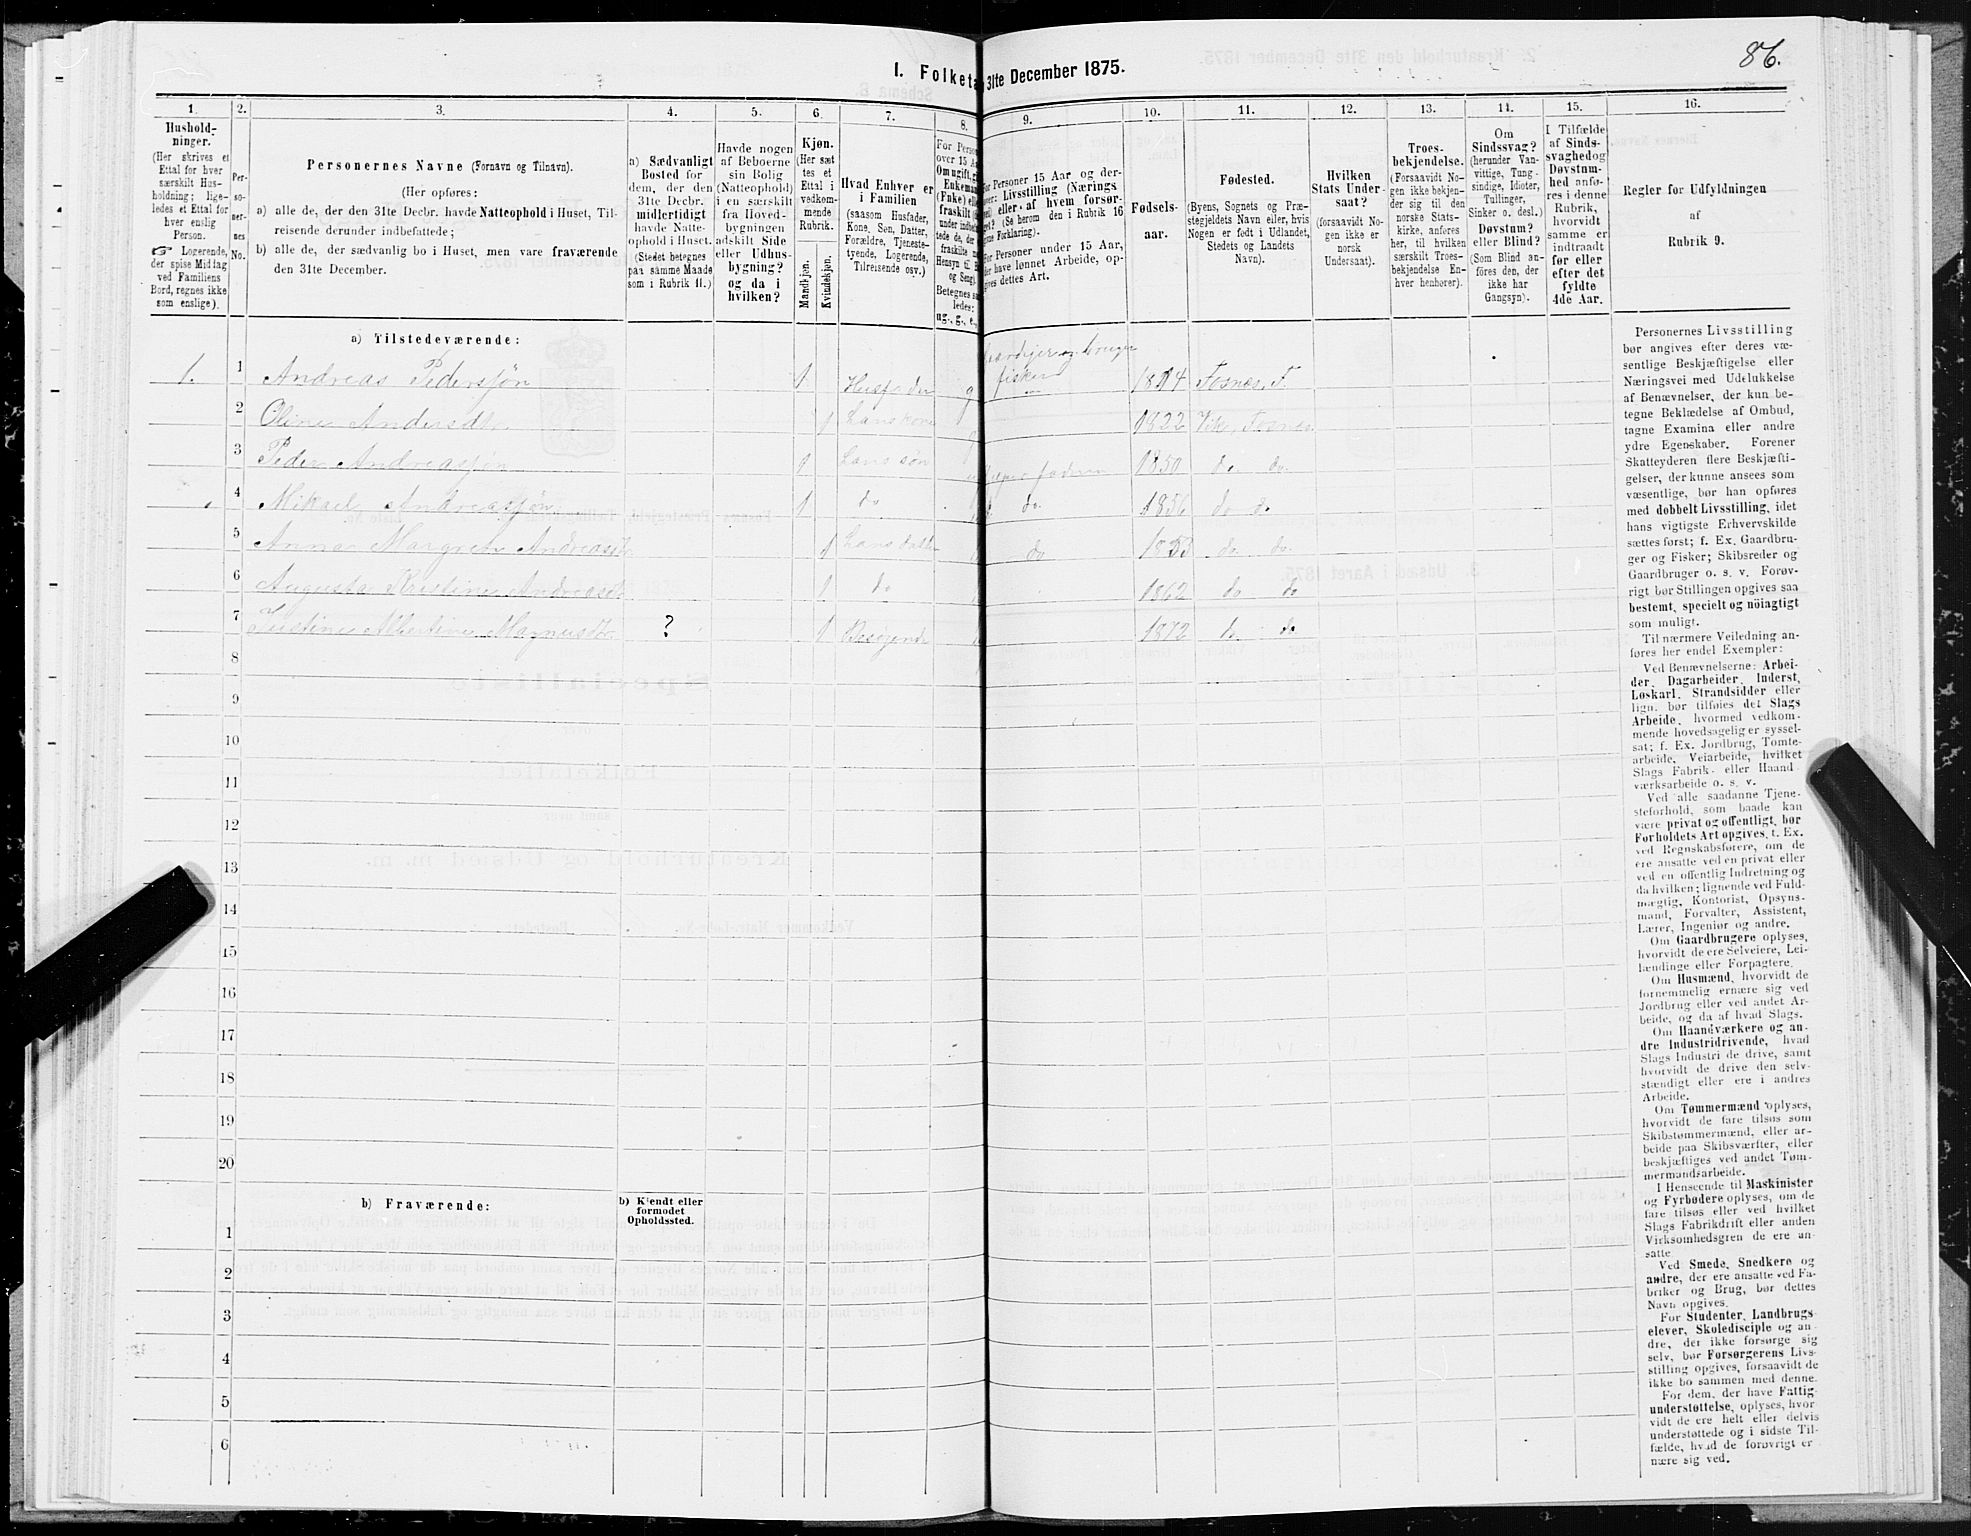 86.
I. Folketa 31te December 1875.
1.
Hushold-
ninger.
(Her skrives et
Ettal for hver
særskilt Hus-
holdning; lige-
ledes et Ettal for
hver enslig
Person.
☞ Logerende,
der spise Midtag
ved Familiens
Bord, regnes ikke
som enslige).
2.
Per-
so-
ner-
nes
No.
3.
Personernes Navne (Fornavn og Tilnavn).
(Her opføres:
a) alle de, der den 31te Decbr. havde Natteophold i Huset, Til-
reisende derunder indbefattede;
b) alle de, der sædvanlig bo i Huset, men vare fraværende
den 31te December.
4.
a) Sædvanligt
Bosted for
dem, der den
31te Decbr.
midlertidigt
havde Natte-
ophold i Huset.
(Stedet betegnes
paa samme Maade
som i Rubrik 11.)
5.
Havde nogen
af Beboerne
sin Bolig
(Natteophold)
i en særskilt
fra Hoved-
bygningen
adskilt Side
eller Udhus-
bygning?
og da i
hvilken?
6.
Kjøn.
(Her sæt
tes et
Ettal i
vedkom-
mende
Rubrik.
Mandkjøn.
Kvindekjøn.
7.
Hvad Enhver er
i Familien
(saasom Husfader,
Kone, Søn, Datter,
Forældre, Tjeneste-
tyende, Logerende,
Tilreisende osv.)
8.
For Person
over 15 A
Om ugift, gi
Enkeman
(Enke) elle
fraskilt (
under indbe
tede de, der
fraskilte m
Hensyn til B
og Seng).
Betegnes sa
ledes:
ug., g., e.,
9.
For Personer 15 Aar og der-
over: Livsstilling (Nærings
vei) eller af hvem forsør-
get? (Se herom den i Rubrik 16
givne Forklaring).
For Personer under 15 Aar,
der have lønnet Arbeide, op-
gives dettes Art.
10.
Fødsels-
aar.
11.
Fødested.
(Byens, Sognets og Præ-
stegjeldets Navn eller, hvis
Nogen er født i Udlandet,
Stedets og Landets
Navn).
12.
Hvilken
Stats Under-
saat?
(forsaavidt No-
gen ikke er
norsk
Undersaat).
13.
Troes-
bekjendelse.
(Forsaavidt No-
gen ikke bekjen-
der sig til den
norske Stats-
kirke, anføres
her, til hvilken
særskilt Troes-
bekjendelse En-
hver henhører).
14.
Om
Sindssvag?
(herunder Van-
vittige, Tung-
sindige, Idioter,
Tullinger,
Sinker o. desl.)
Døvstum?
eller Blind?
(Som Blind an-
føres den, der
ikke har
Gangsyn).
15.
I Tilfælde
af Sinds-
svaghed og
Døvstum-
hed anfø-
res i denne
Rubrik,
hvorvidt
samme er
indtraadt
før eller
efter det
fyldte
4de Aar.
16.
Regler for Udfyldningen
af
Rubrik 9.
a) Tilstedeværende:
1. 1 Andreas Pedersjøn 1 Husfader g Gaardejer og bruger fisker 1814 Fosnes, F.
2 Oline Andersdtr 1 Hans kone g 1822 Vik, Fosnes
3 Peder Andreassjøn 1 Hans søn 1850 do do.
4 Mikael Andreassjøn 1 do do. 1856 do do
5 Anna Margrete Andreasdtr 1 Hans datter do 1853 do do.
6 Augusta Kristine Andreasdtr 1 do 1862 do do
7 Justine Albertine Magnusdtr. ? 1 Besøgende 1872 do do
8
9
10
11
12
13
14
15
16
17
18
19
20
b) Fraværende:
b) Kjendt eller
formodet
Opholdssted.
1
2
3
4
5
6
Personernes Livsstilling
bør angives efter deres væ-
sentlige Beskjæftigelse eller
Næringsvei med Udelukkelse
af Benævnelser, der kun be-
tegne Beklædelse af Ombud,
tagne Examina eller andre
ydre Egenskaber. Forener
Skatteyderen flere Beskjæfti-
gelser, der kunne ansees som
væsentlige, bør han opføres
med dobbelt Livsstilling, idet
hans vigtigste Erhvervskilde
sættes først; f. Ex. Gaardbru-
ger og Fisker; Skibsreder og
Gaardbruger o. s. v. Forøv-
rigt bør Stillingen opgives saa
bestemt, specielt og nöiagtigt
som muligt.
Til nærmere Veiledning an-
føres her endel Exempler:
Ved Benævnelserne: Arbei-
der, Dagarbeider, Inderst,
Løskarl, Strandsidder eller
lign. bør tilføies det Slags
Arbeide, hvormed vedkom-
mende hovedsagelig er syssel-
sat; f. Ex. Jordbrug, Tomte-
arbeide, Veiarbeide, hvilket
Slags Fabrik- eller Haand-
værksarbeide o. s. v.
Ved alle saadanne Tjene-
steforhold, som baade kan
være privat og offentligt, bør
Forholdets Art opgives, t. Ex.
ved Regnskabsførere, om de
ere ansatte ved en privat eller
ved en offentlig Indretning og
da hvilken; lignende ved Fuld-
mægtig, Kontorist, Opsyns-
mand, Forvalter, Assistent,
Lærer, Ingeniør og andre.
Om Gaardbrugere oplyses,
hvorvidt de ere Selveiere, Lei-
lændinge eller Forpagtere.
Om Husmænd, hvorvidt de
fornemmelig ernære sig ved
Jordbrug eller ved andet Ar-
beide, og da af hvad Slags.
Om Haandværkere og an-
dre Industridrivende, hvad
Slags Industri de drive, samt
hvorvidt de drive den selv-
stændigt eller ere i andres
Arbeide.
Om Tømmermænd oplyses,
hvorvidt de fare tilsøs som
Skibstømmermænd, eller ar-
beide paa Skibsværfter, eller
beskjæftiges ved andet Tøm-
mermandsarbeide.
I Henseende til Maskinister
og Fyrbødere oplyses, om de
fare tilsøs eller ved hvilket
Slags Fabrikdrift eller anden
Virksomhedsgren de ere an-
satte.
Ved Smede, Snedkere og
andre, der ere ansatte ved Fa-
briker og Brug, bør dettes
Navn opgives.
For Studenter, Landbrugs-
elever, Skoledisciple og an-
dre, der ikke forsørge sig
selv, bør Forsørgerens Livs-
stilling opgives, forsaavidt de
ikke bo sammen med denne.
For dem, der have Fattig-
understøttelse, oplyses, hvor-
vidt de ere helt eller delvis
understøttede og i sidste Til-
fælde, hvad de forøvrigt er-
nære sig ved.